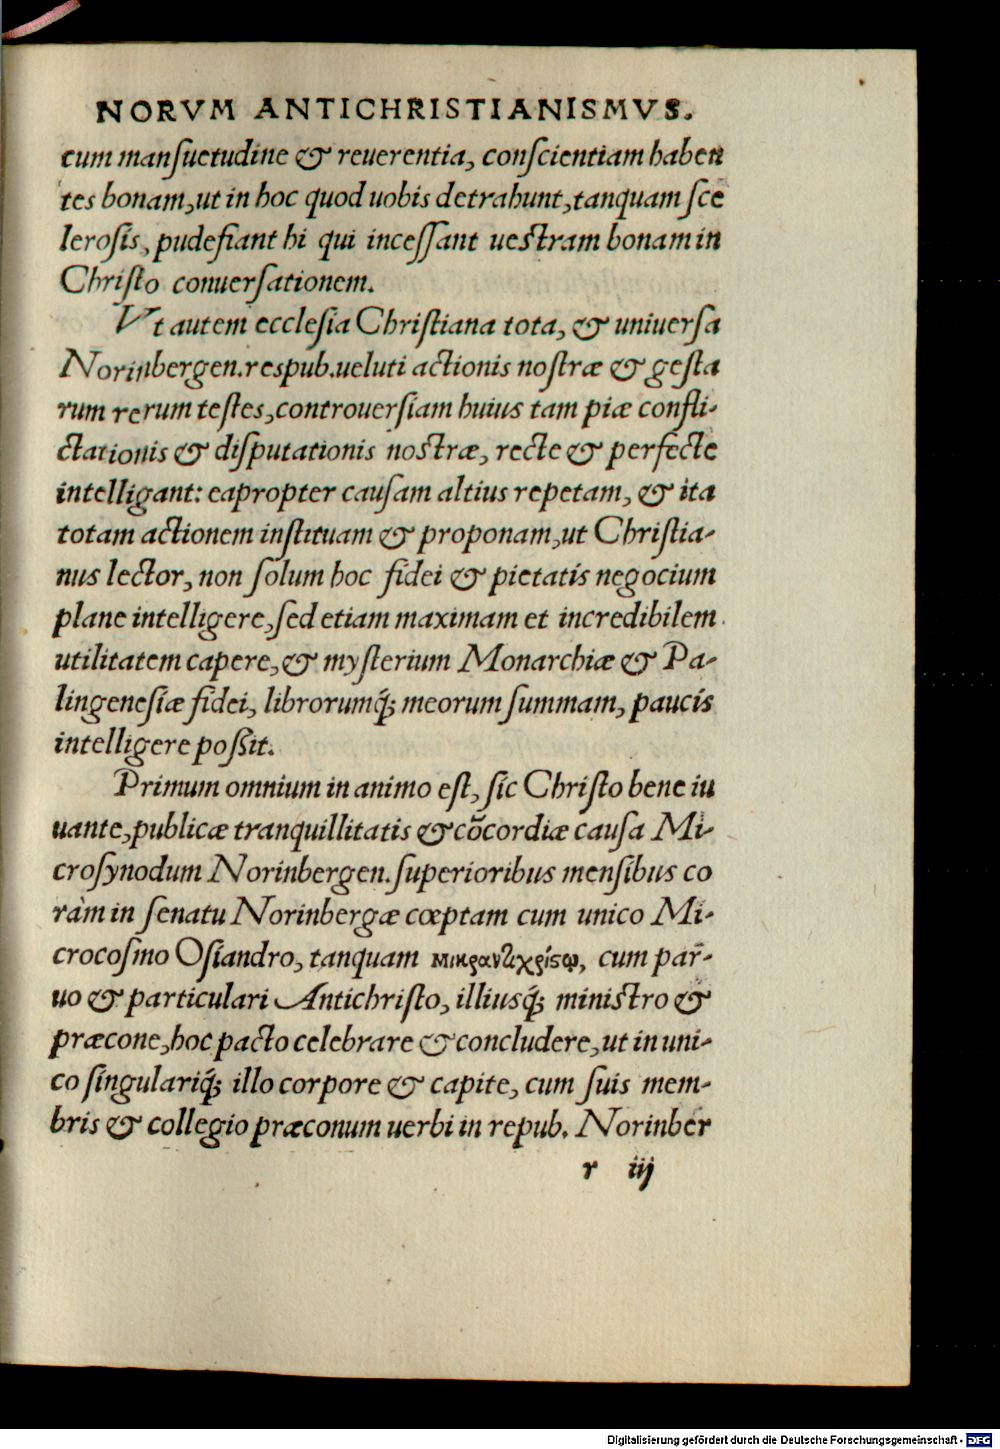 NORVM ANTICHRISTIANISMVS.
cum manſuetudine & reuerentia, conſcientiam haben
tes bonam, ut in hoc quod uobis detrahunt, tanquam ſce
leroſis, pudefiant hi qui inceſſant ueſtram bonam in
Chriſto conuerſationem.
Vt autem eccleſia Chriſtiana tota, & uniuerſa
Norinbergen. reſpub. ueluti actionis noſtræ & geſta
rum rerum teſtes, controuerſiam huius tam piæ confli-
ctationis & diſputationis noſtræ, recte & perfecte
intelligant: eapropter cauſam altius repetam, & ita
totam actionem inſtituam & proponam, ut Chriſtia-
nus lector, non ſolum hoc fidei & pietatis negocium
plane intelligere, ſed etiam maximam et incredibilem
utilitatem capere, & myſterium Monarchiæ & Pa-
lingeneſiæ fidei, librorumq́; meorum ſummam, paucis
intelligere poßit.
Primum omnium in animo eſt, ſic Chriſto bene iu
uante, publicæ tranquillitatis & cõcordiæ cauſa Mi-
croſynodum Norinbergen. ſuperioribus menſibus co
ràm in ſenatu Norinbergæ cœptam cum unico Mi-
crocoſmo Oſiandro, tanquam μικραντιχρίστῳ, cum par-
uo & particulari Antichriſto, illiusq́; miniſtro &
præcone, hoc pacto celebrare & concludere, ut in uni-
co ſingulariq́; illo corpore & capite, cum ſuis mem-
bris & collegio præconum uerbi in repub. Norinber
r iij
Digitalisierung gefördert durch die Deutsche Forschungsgemeinschaft - DFG